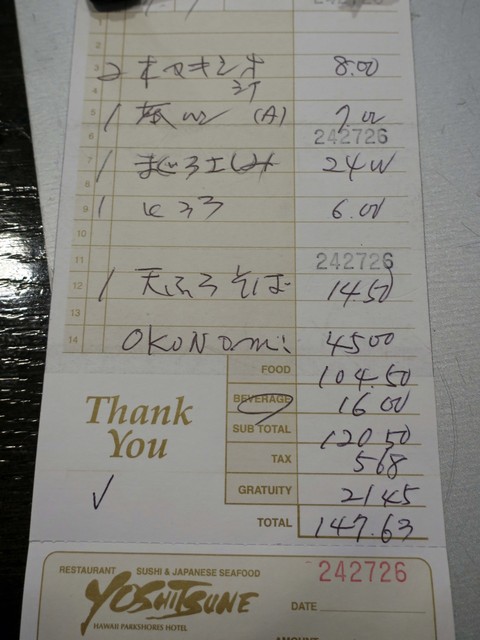 242726
1
2
3 2 8.00
4
5 1 (A) 7.00
6 242726
7 1 まぐろ 24 00
8
9 1 ヒラメ 6.00
10
11 242726
12 1 天ぷらそば 14.50
13
14 OKONOMI 45 00
FOOD 104.50
Thank You
BEVERAGE 16 00
SUB TOTAL 120 50
TAX 5 68
✓
GRATUITY 21 45
TOTAL 147.63
RESTAURANT SUSHI & JAPANESE SEAFOOD 242726
YOSHITSUNE
DATE
HAWAII PARKSHORES HOTEL
AMOUNT